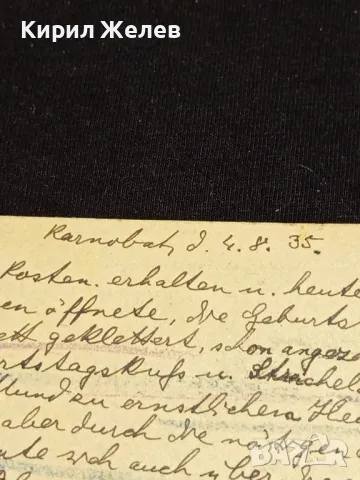 Кирил Желев
Karnobat, d. 4. 8. 35.
Posten. erhalten u. heute
en öffnete, die Geburts
ett geklettert, schon angeze
rtstagskuß u.
und zu ernstlichem
aber durch die
te sich auch über
bazar